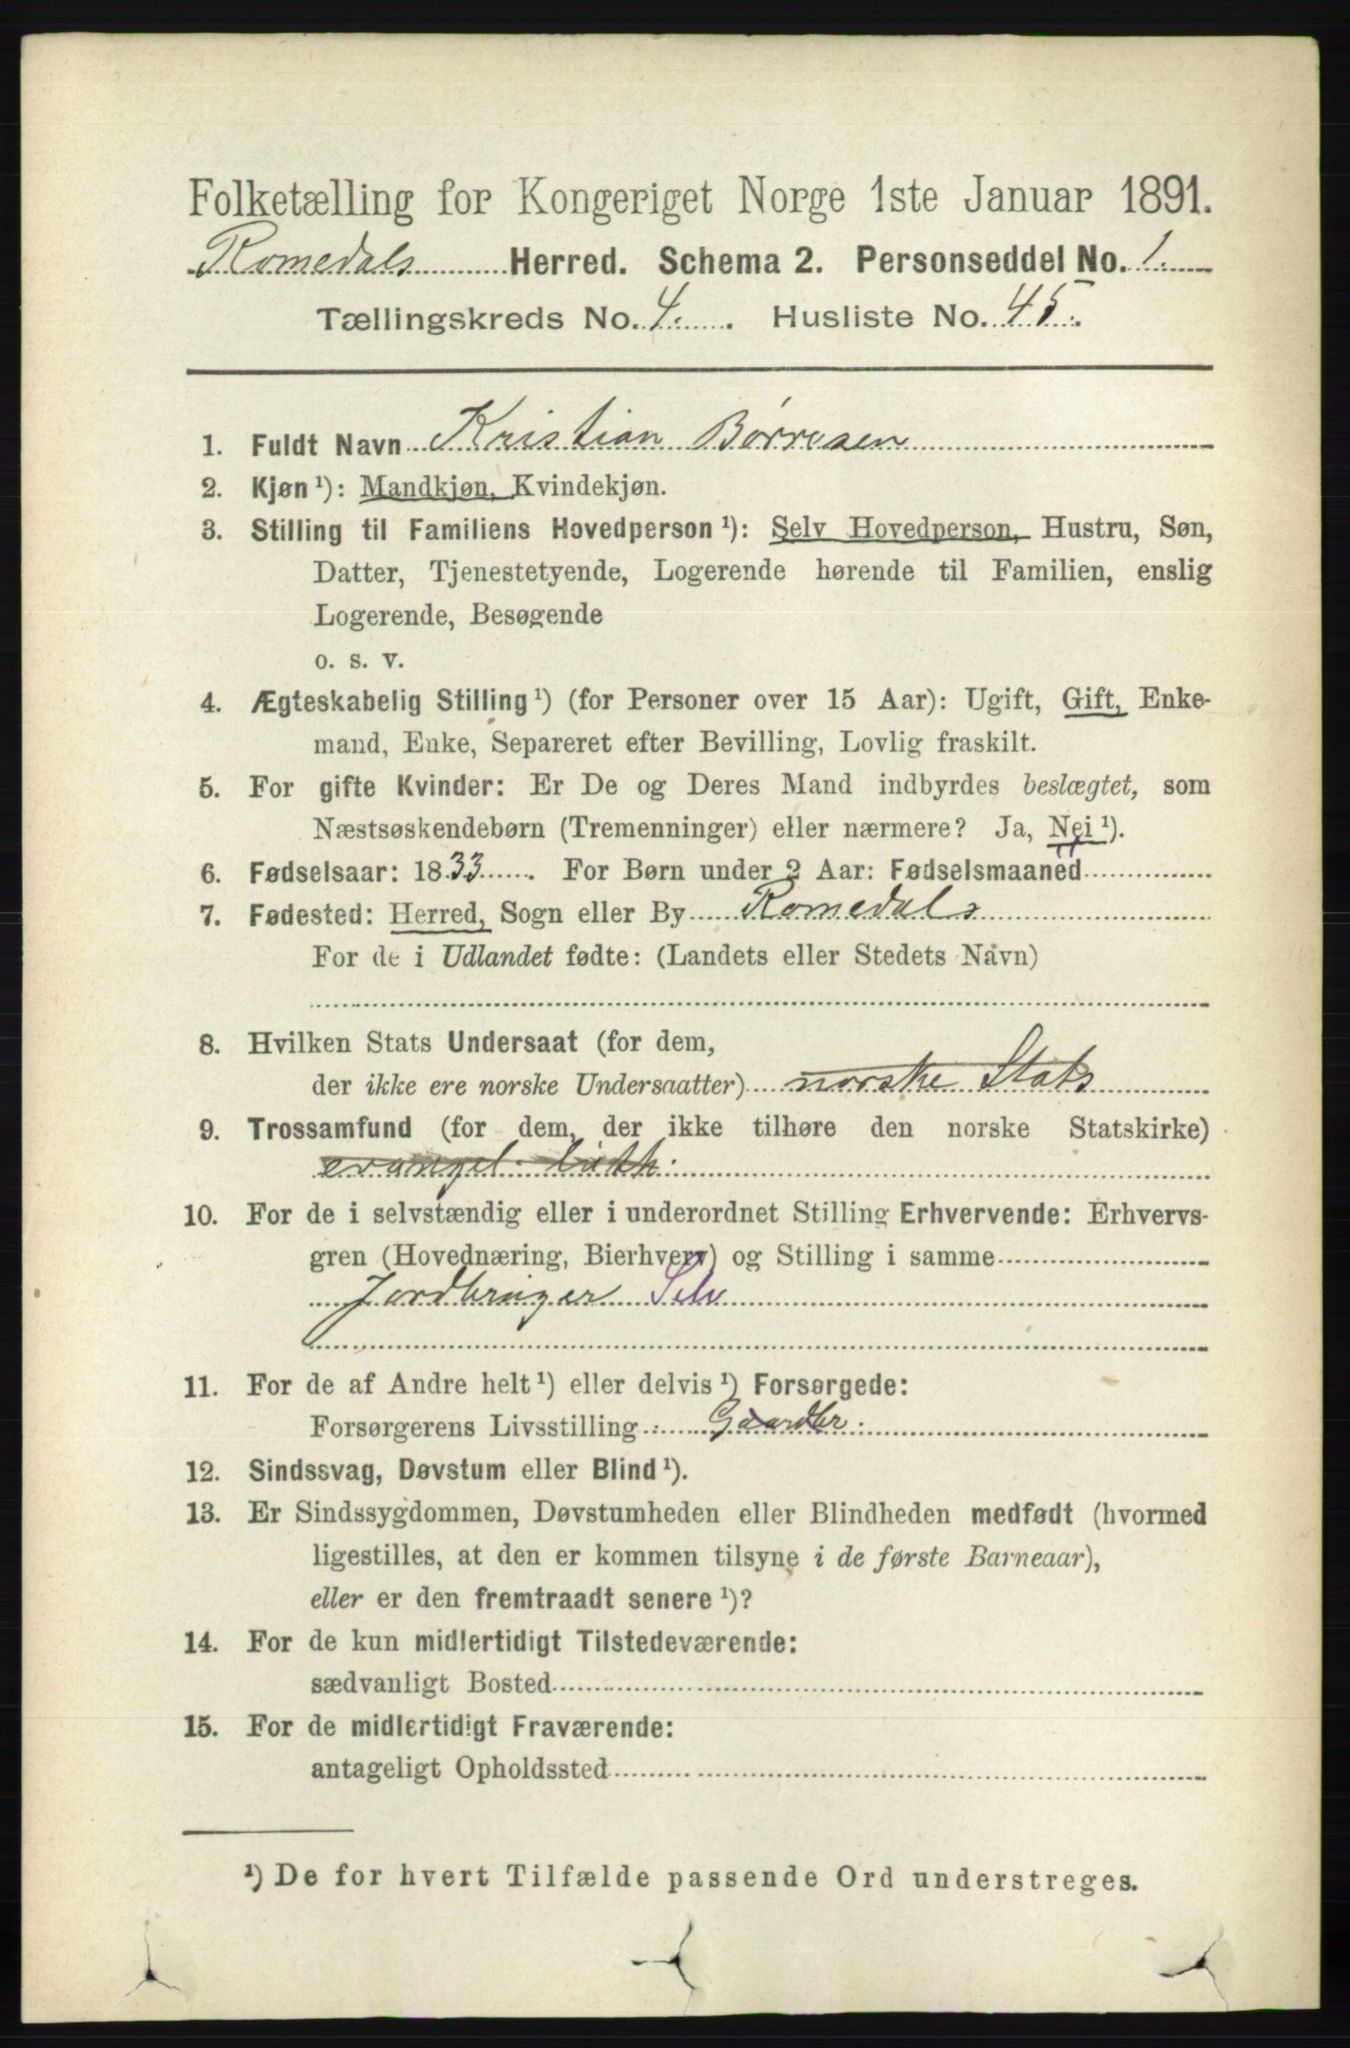 Folketælling for Kongeriget Norge 1ste Januar 1891.
Romedals Herred. Schema 2. Personseddel No. 1.
Tællingskreds No. 4. Husliste No. 45.
1. Fuldt Navn Kristian Børresen
2. Kjøn¹): Mandkjøn, Kvindekjøn.
3. Stilling til Familiens Hovedperson¹): Selv Hovedperson, Hustru, Søn,
Datter, Tjenestetyende, Logerende hørende til Familien, enslig
Logerende, Besøgende
o. s. v.
4. Ægteskabelig Stilling¹) (for Personer over 15 Aar): Ugift, Gift, Enke-
mand, Enke, Separeret efter Bevilling, Lovlig fraskilt.
5. For gifte Kvinder: Er De og Deres Mand indbyrdes beslægtet, som
Næstsøskendebørn (Tremenninger) eller nærmere? Ja, Nei¹).
6. Fødselsaar: 1833. For Børn under 2 Aar: Fødselsmaaned
7. Fødested: Herred, Sogn eller By Romedals
For de i Udlandet fødte: (Landets eller Stedets Navn)
8. Hvilken Stats Undersaat (for dem,
der ikke ere norske Undersaatter) norske Stats
9. Trossamfund (for dem, der ikke tilhøre den norske Statskirke)
evangel. luth.
10. For de i selvstændig eller i underordnet Stilling Erhvervende: Erhvervs-
gren (Hovednæring, Bierhverv) og Stilling i samme
Jordbruger Selv
11. For de af Andre helt¹) eller delvis¹) Forsørgede:
Forsørgerens Livsstilling Gaardbr.
12. Sindssvag, Døvstum eller Blind¹).
13. Er Sindssygdommen, Døvstumheden eller Blindheden medfødt (hvormed
ligestilles, at den er kommen tilsyne i de første Barneaar),
eller er den fremtraadt senere¹)?
14. For de kun midlertidigt Tilstedeværende:
sædvanligt Bosted
15. For de midlertidigt Fraværende:
antageligt Opholdssted
¹) De for hvert Tilfælde passende Ord understreges.